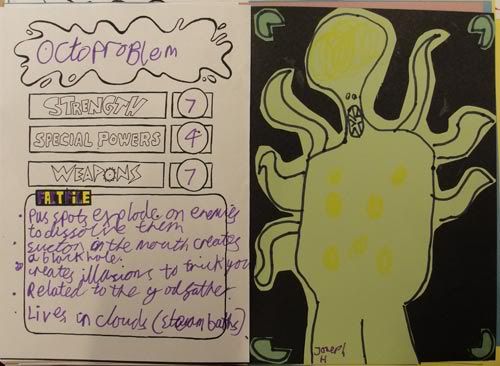 Octoproblem
STRENGTH 7
SPECIAL POWERS 4
WEAPONS 7
FACT FILE
• Pus spots explode on enemies
to dissolve them
suction in the mouth creates
a black hole.
• creates illusions to trick you
• Related to the godfather
• Lives in clouds (steam baths)
Joseph
H